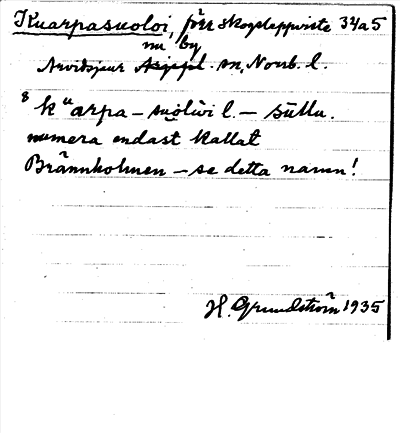 Kuarpasuoloi, förr skogslappviste 34a5
nu by
Arvidsjaur sn, Norrb. l.
8 kuarpa – suölùi l. – sùllu.
numera endast kallat
Brännholmen – se detta namn!
H. Grundström 1935